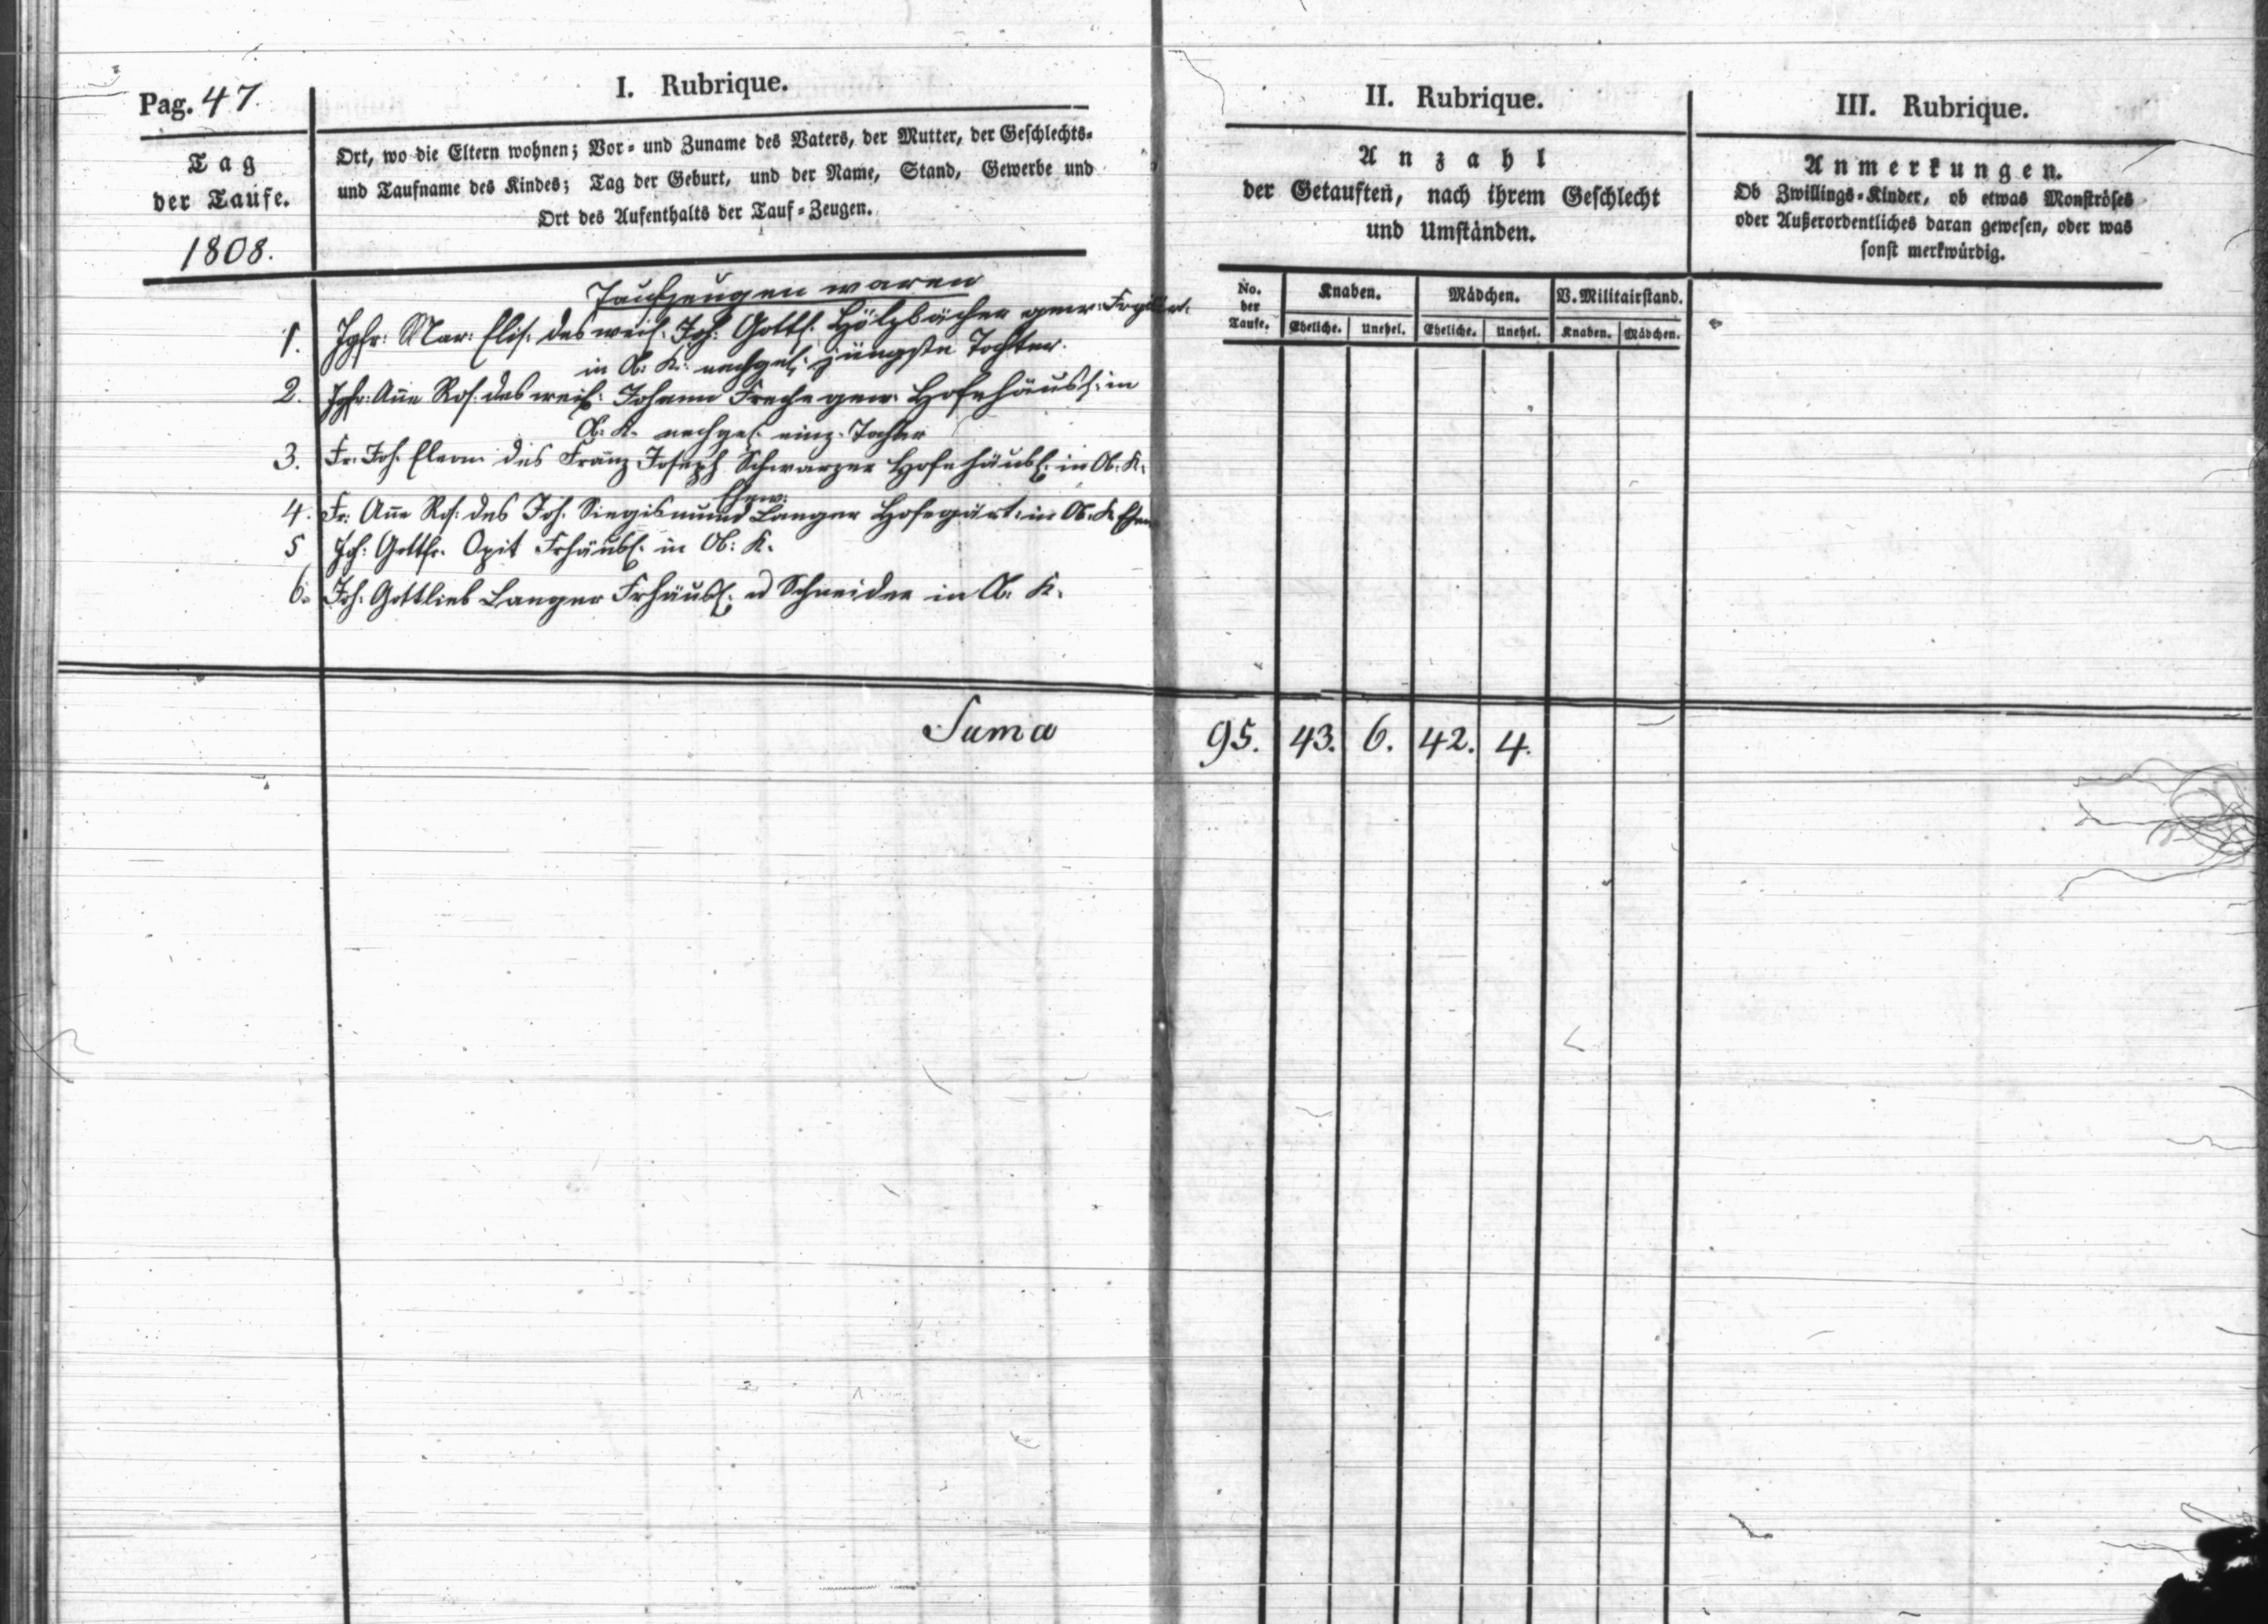 Pag. 47.
I. Rubrique.
Tag
der Taufe.
1808.
Ort, wo die Eltern wohnen; Vor- und Zuname des Vaters, der Mutter, der Geschlechts-
und Taufname des Kindes; Tag der Geburt, und der Name, Stand, Gewerbe und
Ort des Aufenthalts der Tauf-Zeugen.
Taufzeugen waren
1. Jgfr: Mar: Elis. des weil. Joh: Gottf. Hölzbächer gew: Frgärt.
in Ob: K: nachgel: jüngste Tochter.
2. Jgfr: Ane Ros. des weil: Johann Freche gew. Hofehäusl: in
Ob: K. nachgel. einz. Tochter
3. Fr. Joh. Eleon. des Franz Joseph Schwarzer Hofehäusl. in Ob: K.
Ehew:
4. Fr: Ane Ros: des Joh. Siegismund Langer Hofegärt: in Ob. K.
5 Joh: Gottfr. Opit Frhäusl. in Ob: K.
6. Joh: Gottlieb Langer Frhäusl. u Schneider in Ob: K.
Suma
II. Rubrique.
Anzahl
der Getauften, nach ihrem Geschlecht
und Umständen.
No.
der
Taufe.
Knaben.
Mädchen.
V. Militairstand.
Eheliche. Unehel. Eheliche. Unehel. Knaben. Mädchen.
95. 43. 6. 42. 4.
III. Rubrique.
Anmerkungen.
Ob Zwillings-Kinder, ob etwas Monströses
oder Außerordentliches daran gewesen, oder was
sonst merkwürdig.